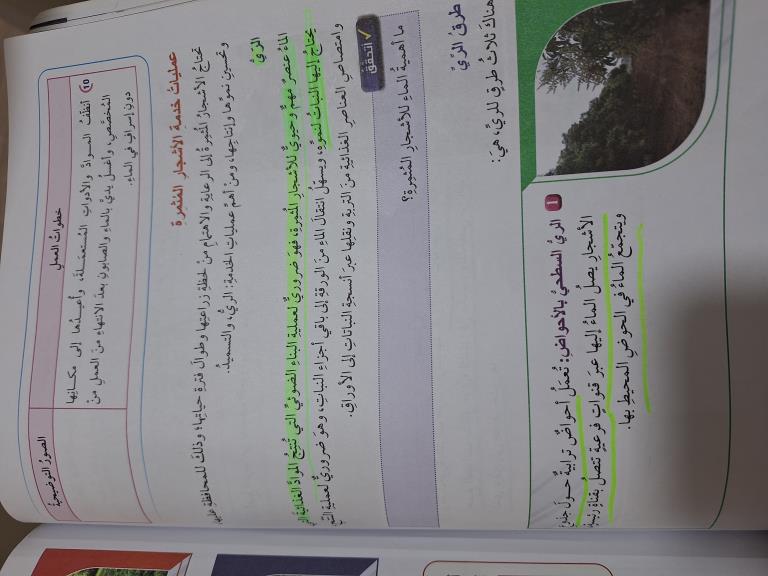 الصور التوضيحية
خطوات العمل
10 أنظف المواد والأدوات المستعملة، وأعيدها إلى مكانها
المخصص، وأغسل يدي بالماء والصابون بعد الانتهاء من العمل من
دون إسراف في الماء.
عمليات خدمة الأشجار المثمرة
تحتاج الأشجار المثمرة إلى الرعاية والاهتمام من لحظة زراعتها وطوال فترة حياتها؛ وذلك للمحافظة عليها
وتحسين نموها وإنتاجها، ومن أهم عمليات الخدمة: الري، والتسميد.
الري
الماء عنصر مهم وحيوي للأشجار المثمرة، فهو ضروري لعملية البناء الضوئي التي تنتج المواد الغذائية التي
يحتاج إليها النبات لنموه، ويسهل انتقال الماء من الورقة إلى باقي أجزاء النبات، وهو ضروري لعملية النتح
وامتصاص العناصر الغذائية من التربة ونقلها عبر أنسجة النباتات إلى الأوراق.
✓ أتحقق
ما أهمية الماء للأشجار المثمرة؟
طرق الري
هناك ثلاث طرق للري، هي:
1 الري السطحي بالأحواض: تعمل أحواض ترابية حول جذوع
الأشجار يصل الماء إليها عبر قنوات فرعية تتصل بقناة رئيسة
ويتجمع الماء في الحوض المحيط بها.